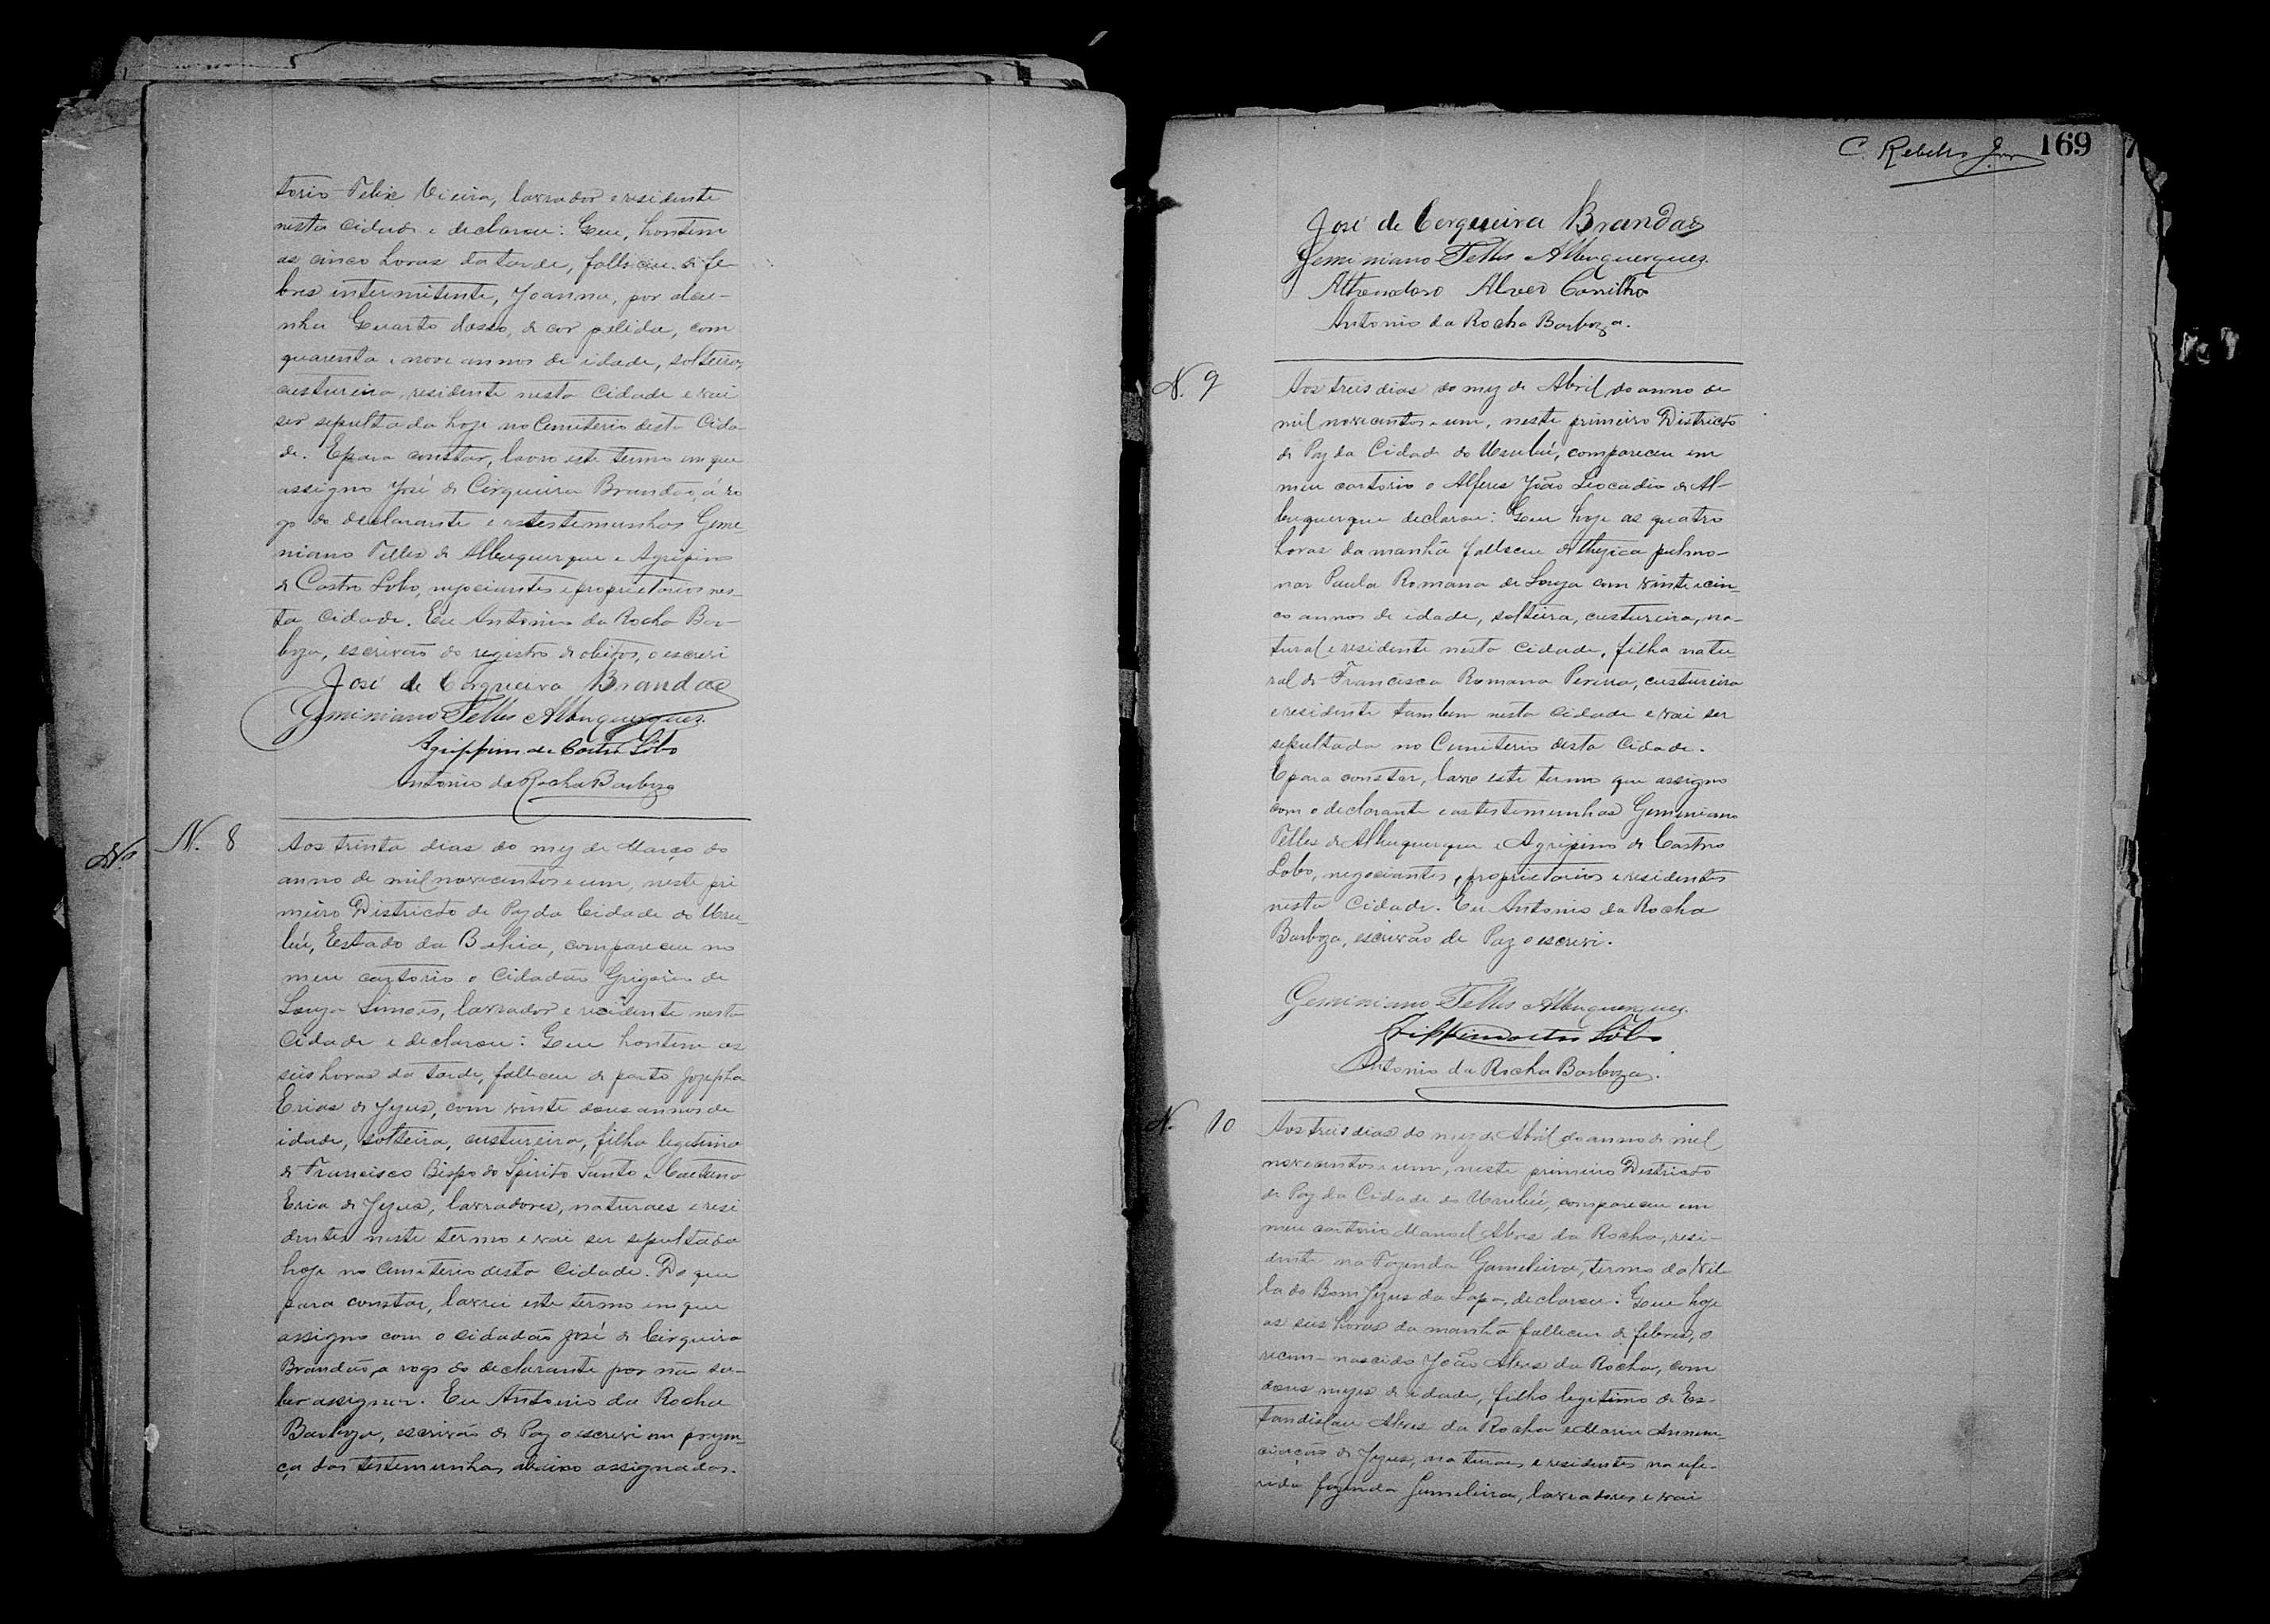 torio Felix Vieira, lavrador e residente
nesta cidade e declarou: Que, hontem
as cinco horas da tarde, falleceu de fe
bres intermitente, Joanna, por alcu-
nha Quarto dosso, de cor palida, com
quarenta e nove annos de idade, solteira,
custureira, residente nesta Cidade e vai
ser sepultada hoje no Cemiterio desta Cida-
de. E para constar, lavro este termo em que
assigno José de Cirqueira Brandão, á ro
go do declarante e as testemunhas Geme-
niano Telles de Albuquerque e Agripino
de Castro Lobo, negociantes e proprietarios nes-
ta cidade. Eu Antonio da Rocha Bar-
boza, escrivão do registro de obitos, o escrevi
José de Cerqueira Brandão
Geminiano Telles Albuquerques.
Agrippino de Castro Lôbo
Antonio da Rocha Barboza
N. 8
Aos trinta dias do mez de Março do
anno de mil novecentos e um, neste pri
meiro Districto de Paz da Cidade do Uru-
bú, Estado da Bahia, compareceu no
meu cartorio o Cidadão Grigorio de
Souza Simões, lavrador e residente nesta
Cidade e declarou: Que hontem as
seis horas da tarde, falleceu de parto Jozepha
Erias de Jezus, com vinte dous annos de
idade, solteira, custureira, filha legitima
de Francisco Bispo do Spirito Santo e Caetana
Eria de Jezus, lavradores, naturaes e resi
dentes neste termo e vai ser sepultada
hoje no Cemiterio desta Cidade. Do que
para constar, lavrei este termo em que
assigno com o cidadão José de Cirqueira
Brandão, a rogo do declarante por não sa-
ber assignar. Eu Antonio da Rocha
Barboza, escrivão de Paz o escrevi em prezen-
ça das testemunhas abaixo assignadas.
169
José de Cerqueira Brandão
Geminiano Telles Albuquerques.
Athenodoro Alves Carrilho
Antonio da Rocha Barboza.
N. 9
Aos treis dias do mez de Abril do anno de
mil novecentos e um, neste primeiro Districto
de Paz da Cidade do Urubú, compareceu em
meu cartorio o Alferes João Leocadio de Al-
buquerque declarou: Que hoje as quatro
horas da manhã falleceu de thyzica pulmo-
nar Paula Romana de Souza com vinte e cin-
co annos de idade, solteira, custureira, na-
tural e residente nesta Cidade, filha natu-
ral de Francisca Romana Pereira, custureira
e residente tambem nesta cidade e vai ser
sepultada no Cemiterio desta Cidade.
E para constar, lavro este termo que assigno
com o declarante e as testemunhas Geminiano
Telles de Albuquerque e Agripino de Castro
Lobo, negociantes, proprietarios e residentes
nesta Cidade. Eu Antonio da Rocha
Barboza, escrivão de Paz o escrevi.
Geminiano Telles Albuquerques.
Lôbo
Antonio da Rocha Barboza.
N. 10
Aos treis dias do mez de Abril do anno de mil
novecentos e um, neste primeiro Destricto
de Paz da Cidade do Urubú, compareceu em
meu cartorio Manoel Alves da Rocha, resi-
dente na Fazenda Gameleira, termo da Vil-
la do Bom Jezus da Lapa, declarou: Que hoje
as seis horas da manhã falleceu de febres, o
recem-nascido João Alves da Rocha, com
dous mezes de idade, filho legitimo de Es-
tandislau Alves da Rocha e Maria Annun-
ciação de Jezus, naturaes e residentes na refe-
rida fazenda Gameleira, lavradores e vai